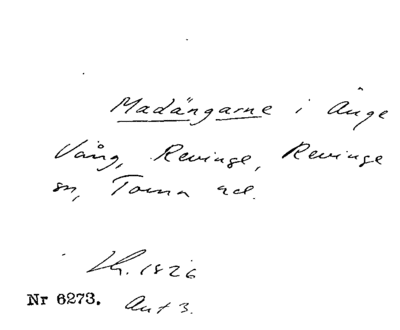 Madängarne i Änge
Vång, Revinge, Revinge
sn, Torna hd.
Lh. 1826
Nr 6273. Akt 3.